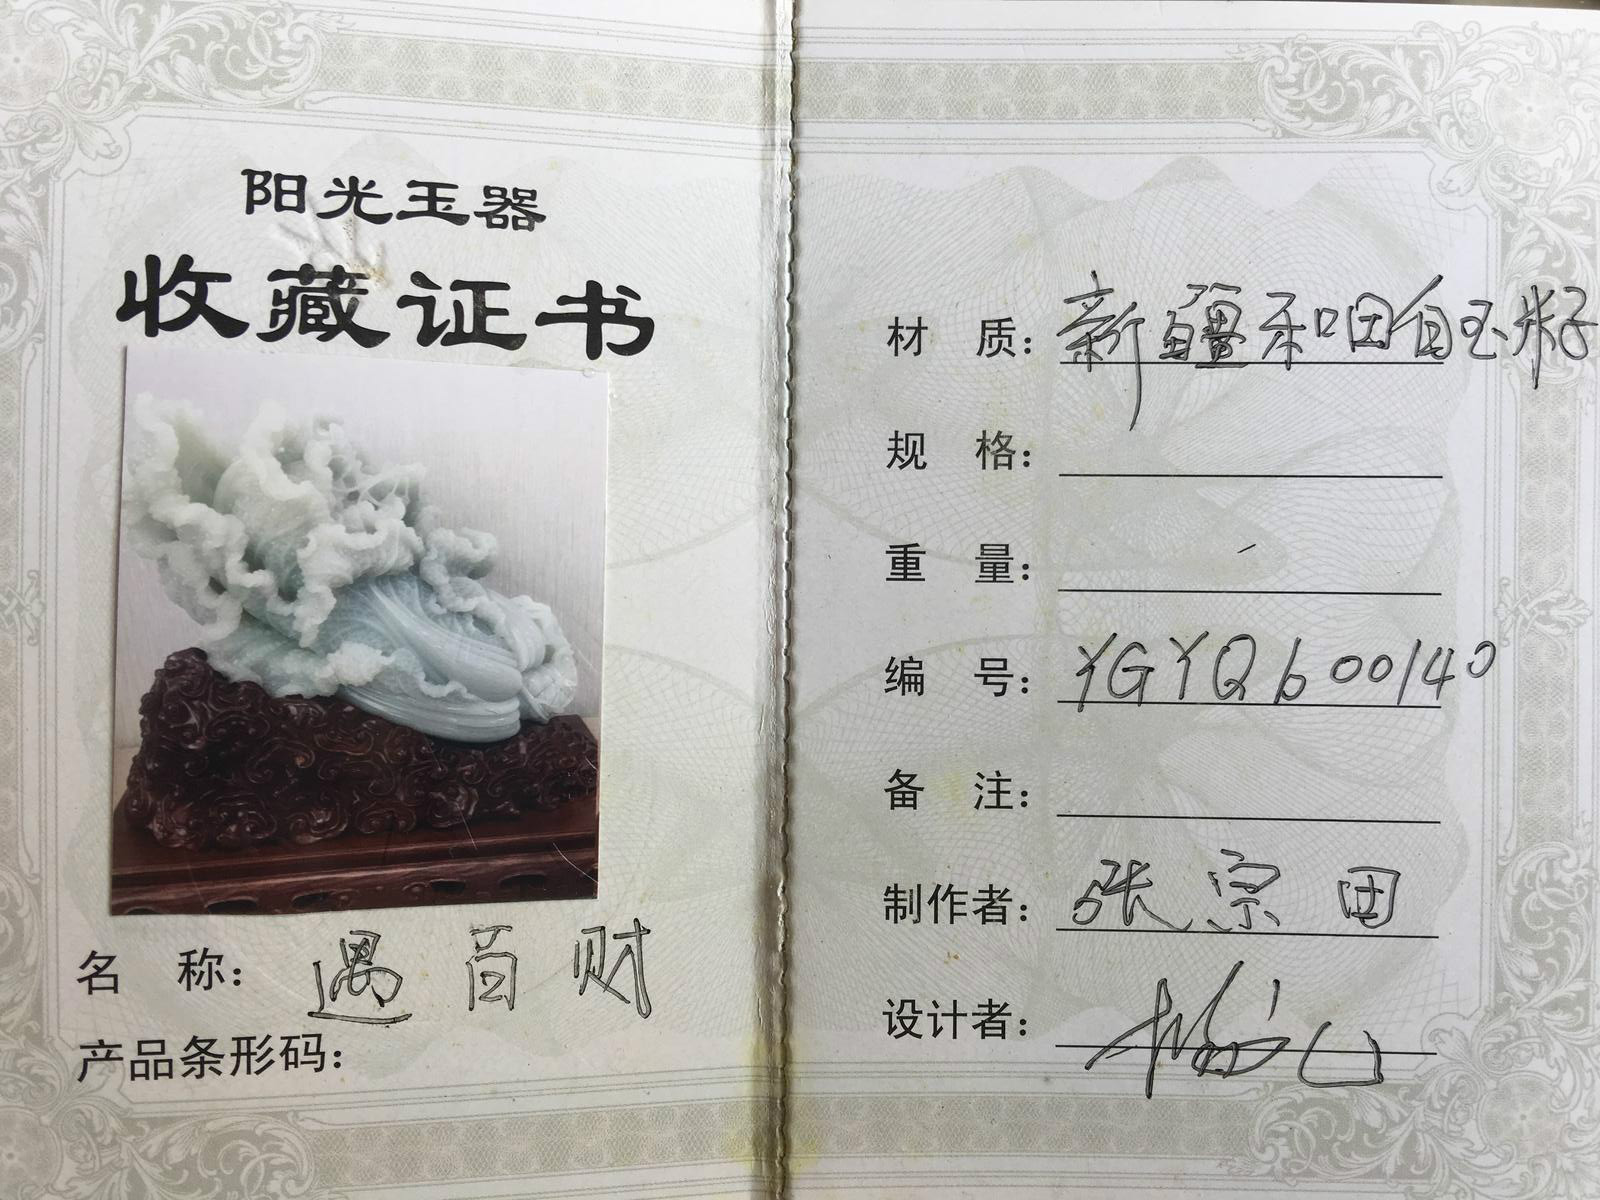 阳光玉器
收藏证书
名 称：遇百财
产品条形码：
材 质：新疆和田白玉籽
规 格：
重 量：
编 号：YGYQ600140
备 注：
制作者：张宗田
设计者：